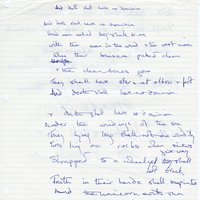 And death shall have no dominion
And death shall have no dominion
Dead men naked they shall be one
With the man in the wind & the west moon
When their bones are picked clean
& the clean bones gone
They shall have stars at elbow & foot
And death shall have no dominion
& death shall have no dominion
Under the windings of the sea
They lying long shall not die windily
Twisting on racks when sinews
give way
Strapped to a wheel yet they shall
not break,
Faith in their hands shall snap in two
And the unicorn evils run